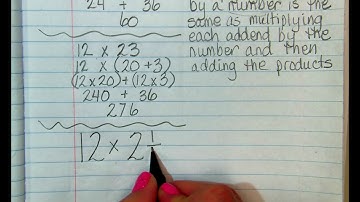 24 + 36
60
by a number is the
same as multiplying
each addend by the
number and then
adding the products
12 × 23
12 × (20 + 3)
(12 × 20) + (12 × 3)
240 + 36
276
12 × 2 1